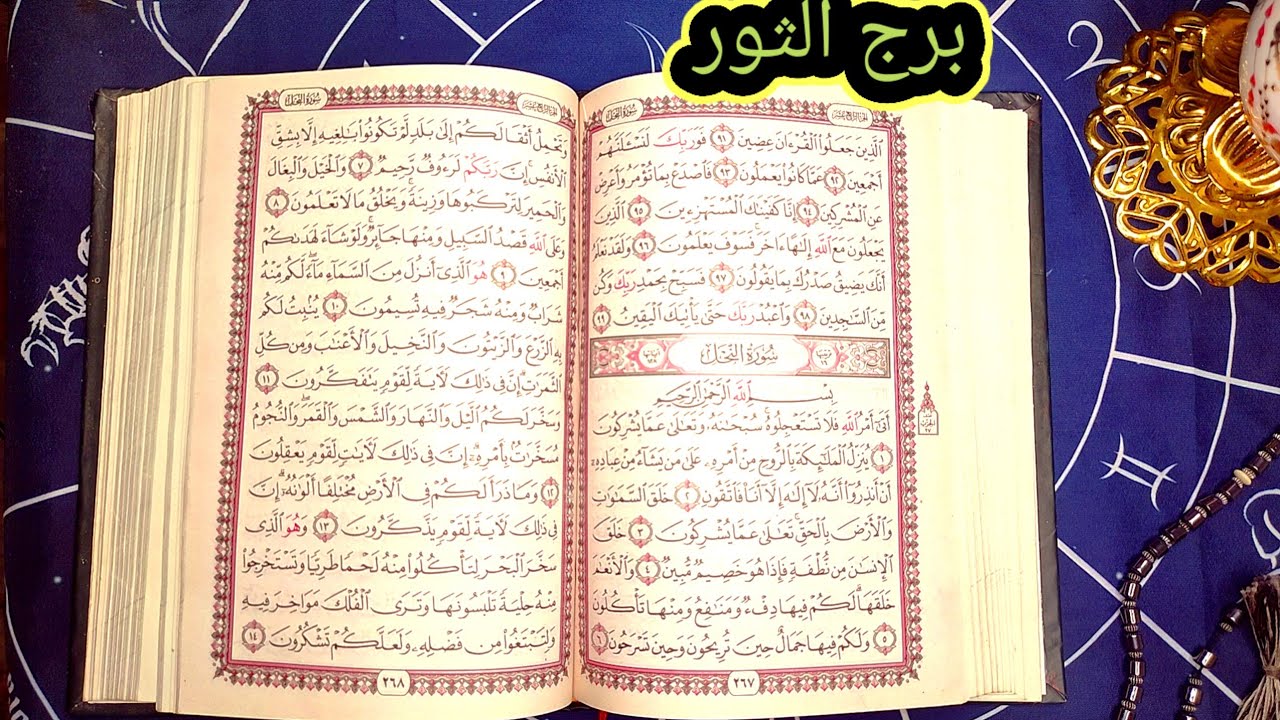 برج الثور
سورة الحجر
الجزء الرابع عشر
الَّذِينَ جَعَلُوا الْقُرْءَانَ عِضِينَ ٩١ فَوَرَبِّكَ لَنَسْـَٔلَنَّهُمْ
أَجْمَعِينَ ٩٢ عَمَّا كَانُوا يَعْمَلُونَ ٩٣ فَاصْدَعْ بِمَا تُؤْمَرُ وَأَعْرِضْ
عَنِ الْمُشْرِكِينَ ٩٤ إِنَّا كَفَيْنَاكَ الْمُسْتَهْزِءِينَ ٩٥ الَّذِينَ
يَجْعَلُونَ مَعَ اللَّهِ إِلَٰهًا ءَاخَرَ فَسَوْفَ يَعْلَمُونَ ٩٦ وَلَقَدْ نَعْلَمُ
أَنَّكَ يَضِيقُ صَدْرُكَ بِمَا يَقُولُونَ ٩٧ فَسَبِّحْ بِحَمْدِ رَبِّكَ وَكُن
مِّنَ السَّاجِدِينَ ٩٨ وَاعْبُدْ رَبَّكَ حَتَّىٰ يَأْتِيَكَ الْيَقِينُ ٩٩
سُورَةُ النَّحْلِ
بِسْمِ اللَّهِ الرَّحْمَٰنِ الرَّحِيمِ
أَتَىٰ أَمْرُ اللَّهِ فَلَا تَسْتَعْجِلُوهُ سُبْحَانَهُ وَتَعَالَىٰ عَمَّا يُشْرِكُونَ
١ يُنَزِّلُ الْمَلَائِكَةَ بِالرُّوحِ مِنْ أَمْرِهِ عَلَىٰ مَن يَشَاءُ مِنْ عِبَادِهِ
أَنْ أَنذِرُوا أَنَّهُ لَا إِلَٰهَ إِلَّا أَنَا فَاتَّقُونِ ٢ خَلَقَ السَّمَٰوَٰتِ
وَالْأَرْضَ بِالْحَقِّ تَعَالَىٰ عَمَّا يُشْرِكُونَ ٣ خَلَقَ
الْإِنسَانَ مِن نُّطْفَةٍ فَإِذَا هُوَ خَصِيمٌ مُّبِينٌ ٤ وَالْأَنْعَامَ
خَلَقَهَا لَكُمْ فِيهَا دِفْءٌ وَمَنَافِعُ وَمِنْهَا تَأْكُلُونَ
٥ وَلَكُمْ فِيهَا جَمَالٌ حِينَ تُرِيحُونَ وَحِينَ تَسْرَحُونَ ٦
٢٦٧
سورة النحل
الجزء الرابع عشر
وَتَحْمِلُ أَثْقَالَكُمْ إِلَىٰ بَلَدٍ لَّمْ تَكُونُوا بَالِغِيهِ إِلَّا بِشِقِّ
الْأَنفُسِ إِنَّ رَبَّكُمْ لَرَءُوفٌ رَّحِيمٌ ٧ وَالْخَيْلَ وَالْبِغَالَ
وَالْحَمِيرَ لِتَرْكَبُوهَا وَزِينَةً وَيَخْلُقُ مَا لَا تَعْلَمُونَ ٨
وَعَلَى اللَّهِ قَصْدُ السَّبِيلِ وَمِنْهَا جَائِرٌ وَلَوْ شَاءَ لَهَدَىٰكُمْ
أَجْمَعِينَ ٩ هُوَ الَّذِي أَنزَلَ مِنَ السَّمَاءِ مَاءً لَّكُم مِّنْهُ
شَرَابٌ وَمِنْهُ شَجَرٌ فِيهِ تُسِيمُونَ ١٠ يُنبِتُ لَكُم
بِهِ الزَّرْعَ وَالزَّيْتُونَ وَالنَّخِيلَ وَالْأَعْنَابَ وَمِن كُلِّ
الثَّمَرَاتِ إِنَّ فِي ذَٰلِكَ لَآيَةً لِّقَوْمٍ يَتَفَكَّرُونَ ١١
وَسَخَّرَ لَكُمُ الَّيْلَ وَالنَّهَارَ وَالشَّمْسَ وَالْقَمَرَ وَالنُّجُومُ
مُسَخَّرَاتٌ بِأَمْرِهِ إِنَّ فِي ذَٰلِكَ لَآيَاتٍ لِّقَوْمٍ يَعْقِلُونَ
١٢ وَمَا ذَرَأَ لَكُمْ فِي الْأَرْضِ مُخْتَلِفًا أَلْوَانُهُ إِنَّ
فِي ذَٰلِكَ لَآيَةً لِّقَوْمٍ يَذَّكَّرُونَ ١٣ وَهُوَ الَّذِي
سَخَّرَ الْبَحْرَ لِتَأْكُلُوا مِنْهُ لَحْمًا طَرِيًّا وَتَسْتَخْرِجُوا
مِنْهُ حِلْيَةً تَلْبَسُونَهَا وَتَرَى الْفُلْكَ مَوَاخِرَ فِيهِ
وَلِتَبْتَغُوا مِن فَضْلِهِ وَلَعَلَّكُمْ تَشْكُرُونَ ١٤
٢٦٨